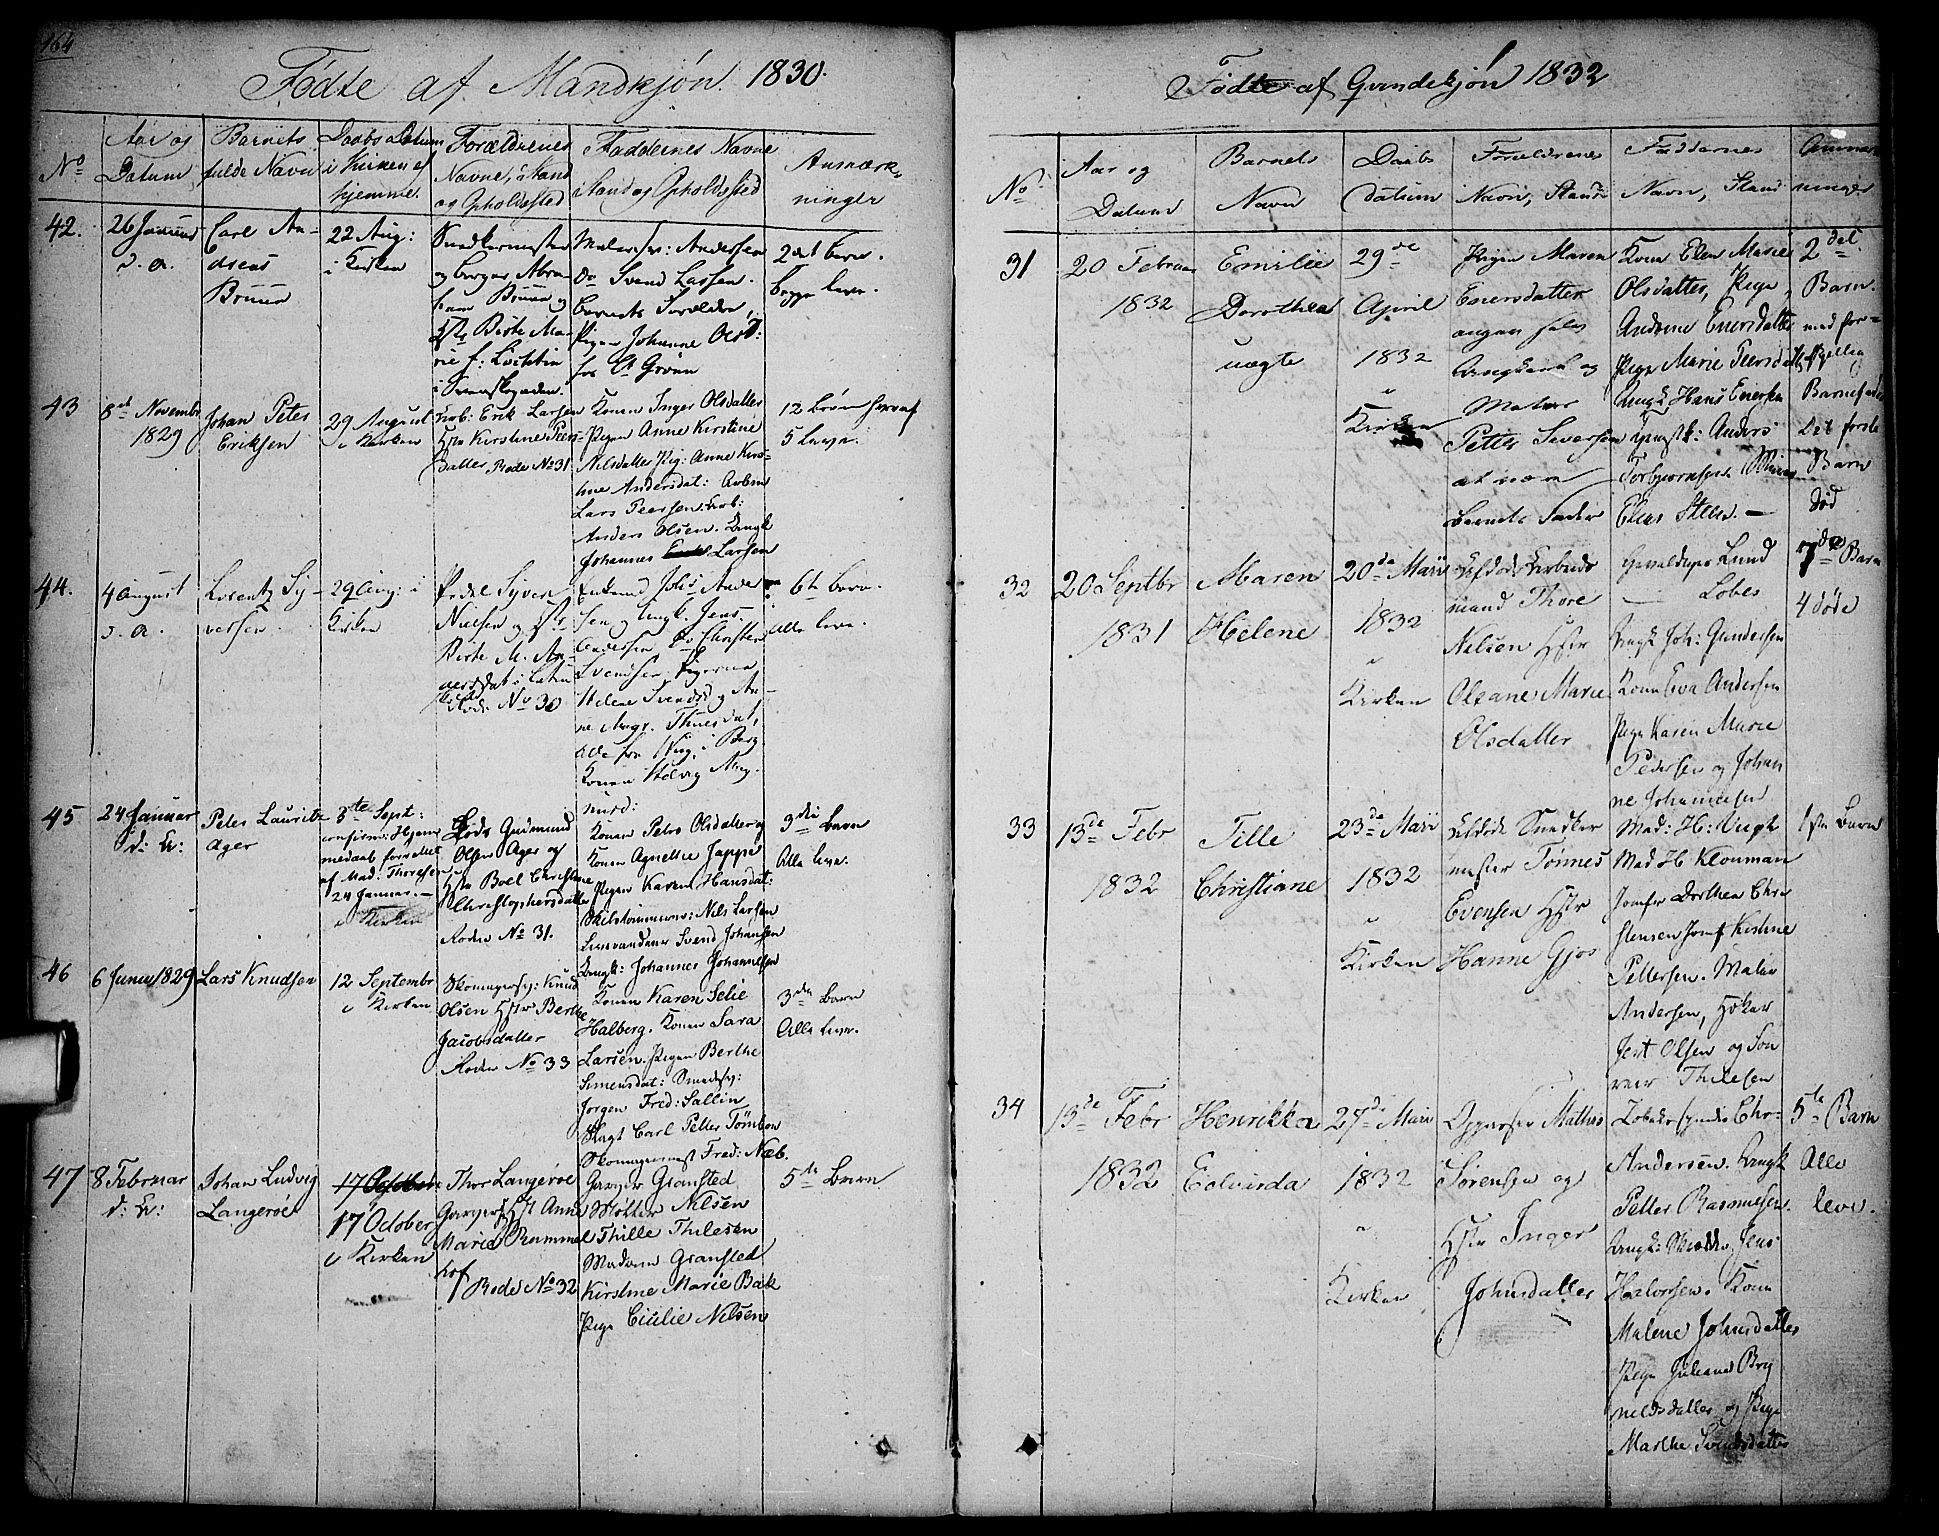 164
Fødte af Mandkjøn. 1830.
No
Aar og
Datum
Barnets
fulde Navn
Daabs Datum
i Kirken el
hjemme.
Forældrenes
Navne, Stand
og Opholdssted
Faddernes Navne
Stand og Opholdssted
Anmærk-
ninger
42.
26 Januar
d. a.
Carl An-
dreas
Bruun
22 Aug:
i Kirken
Snedkermester
og borger Abra-
ham Bruun og
Birte Ma-
rie f:
Malersv: Andersen
do Svend Larsen.
barnets Forældre,
Pigen Johanne Olsd:
2det barn.
begge leve.
43
8de Novembr
1829
Johan Peter
Eriksen
29 August
i Kirken
Arb: Erik Larsen
Hstr Kirstine Peers-
datter Rode No 31
Konen Inger Olsdatter
Pigen Anne Kirstine
Nilsdatter Pig: Anne Kirs-
tine Andersdat: Arbm
Lars Peersen: Arb:
Anders Olsen. Ungk
Johannes Larsen
12 børn hvoraf
5 leve.
44.
4 August
d. a.
Lorentz Sy-
versen
29 Aug: i
Kirken
Syver
Nielsen og Hstr
Birte M. An-
dersdat:
Rode No 30
Johs Ander
sen, Ungk. Jens
Andersen do Christen
Svendsen Pigerne
Helene Svendsd og An-
ne Marg. Thuesdat,
alle fra
Konen
6te barn.
alle leve.
45
24 Januar
d: A:
Peter Lauritz
Ager
5te Sept:
confirm: Hjem
medaab forrettet
af Mad. Thoresen
24 Januar.—
i Kirken
Lods Gudmund
Olsen Ager og
Hstr Boel Christine
Christophersdatter
Roden No 31.
Konen Petro Olsdatter og
Konen Agnethe Jappe
Pigen Karen Hansdat:
Skilstømmerm: Nils Larsen
Svend Johansen
Ungk: Johannes Johannesen
3die Barn
Alle leve.
46
6 Junii 1829
Lars Knudsen
12 Septembr
i Kirken
Skomagersv: Knud
Olsen Hstr Berthe
Jacobsdatter
Roden No 33
Konen Karen Selie
Halberg. Konen Sara
Larsen. Pigen Berthe
Simensdat: Smedsv:
Jørgen Fred: Sallin
Carl Petter Tømben
Skomagermest Fred: Næb.
3die Barn
Alle leve.
47
8 Februar
d: A:
Johan Ludvig
Langerøe
17 October
17 October
i Kirken
Thor Langerøe
Garver Hst Anne
Maria Rummel
hof
Rode No 32
Garver Gransted
Møller Nilsen
Thille Thilesen
Madame Gransted
Kirstine Marie Bak
Pige Cicilie Nilsen
5te Barn
Fødte af Qvindekjøn 1832
No
Aar og
Datum
Barnets
Navn
Daabs
datum
Forældrenes
Navn, Stand
Faddernes
Navn, Stand
Anmærk
ninger
31
20 Februar
1832
Emilie
Dorothea
uægte
29de
April
1832
"
Kirken
Pigen Maren
Enersdatter
angav selv
Ungkarl og
Matros
Petter Seversen
at være
barnets Fader
Kone Elen Marie
Olsdatter, Pige
Andrine Enersdatter
Pige Marie Peersdat
Ungk Hans Enersen
Ungk: Anders
Torbjørnsen
2det
Barn
med for-
skjellig
Barnefader
Det første
Barn
død
32
20 Septbr
1831
Maren
Helene
20de Maii
1832
"
Kirken
Afdøde Arbeids
mand Thore
Nilsen Hstr
Oleane Marie
Olsdatter
Gevaldiger Lund
Lobes
Ungk Joh: Gundersen
Kone Eva Andersen
Pige Karen Marie
Pedersen og Johan
ne Johannesen
7de Barn
4 døde
33
13de Febr
1832
Tille
Christiane
23de Maii
1832
"
Kirken
Afdøde Snedker
mester Tønnes
Evensen Hstr
Hanne Gjøs
Mad: H: Vugh
Mad H Klouman
Jomfr Dorthea Chri
stensen Jomf Kirstine
Pettersen. Maler
Andersen, Høker
Jert Olsen og Gar
ver Thilesen
1ste Barn
34
13de Febr
1832
Henrikka
Edvarda
27de Maii
1832
"
Kirken
Oppasser Mathias
Sørensen og
Hstr Inger
Johnsdatter
Tobaksspinder Chr.
Andersen. Ungk
Petter Rasmussen.
Ungk: Jens
Halvorsen. Kone
Malene Johnsdatter
Pige Juliane Bry
nildsdatter og Pige
Marthe Svendsdatter
5te Barn
Alle
leve.